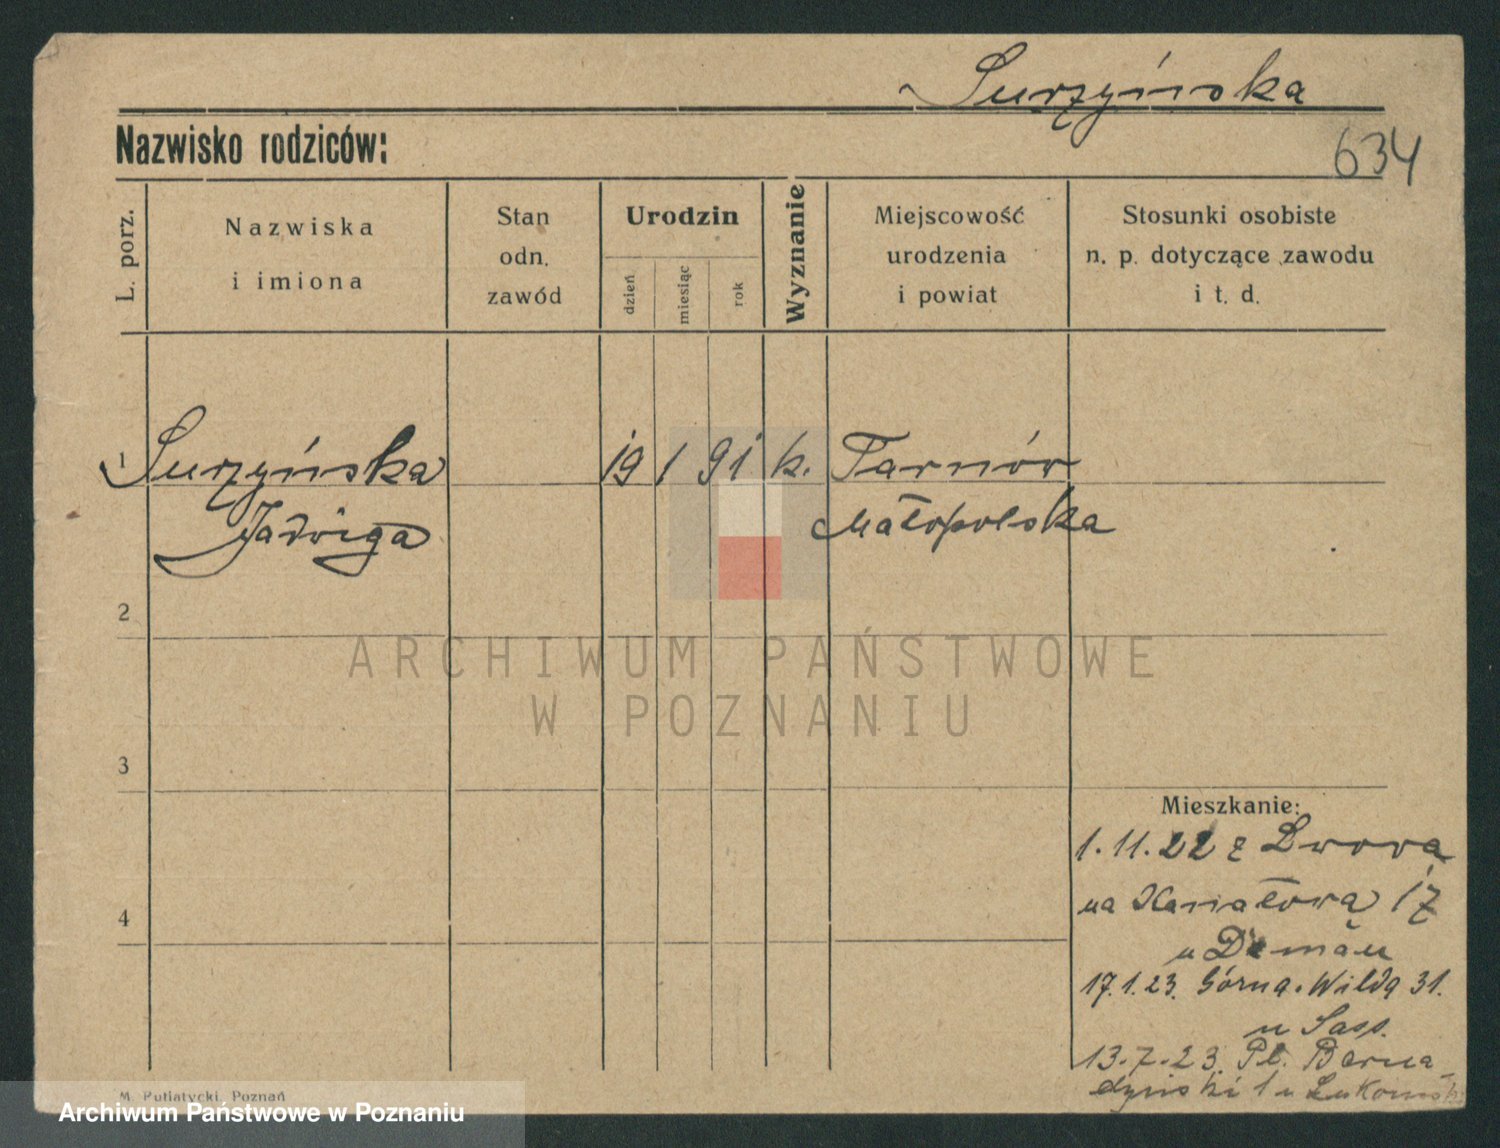 Surzyńska
Nazwisko rodziców:
634
L. porz.
Nazwiska
i imiona
Stan
odn.
zawód
Urodzin
dzień
miesiąc
rok
Wyznanie
Miejscowość
urodzenia
i powiat
Stosunki osobiste
n. p. dotyczące zawodu
i t. d.
1 Surzyńska 19 1 91 k. Tarnów
Jadwiga Małopolska
2
ARCHIWUM PAŃSTWOWE
W POZNANIU
3
Mieszkanie:
1.11.22 z Lwowa
na Kanałową 17
u
4
17.1.23. Górna Wilda 31.
u Sass.
13.7.23. Pl. Berna-
dyński 1 u
M. Putiatycki, Poznań
Archiwum Państwowe w Poznaniu